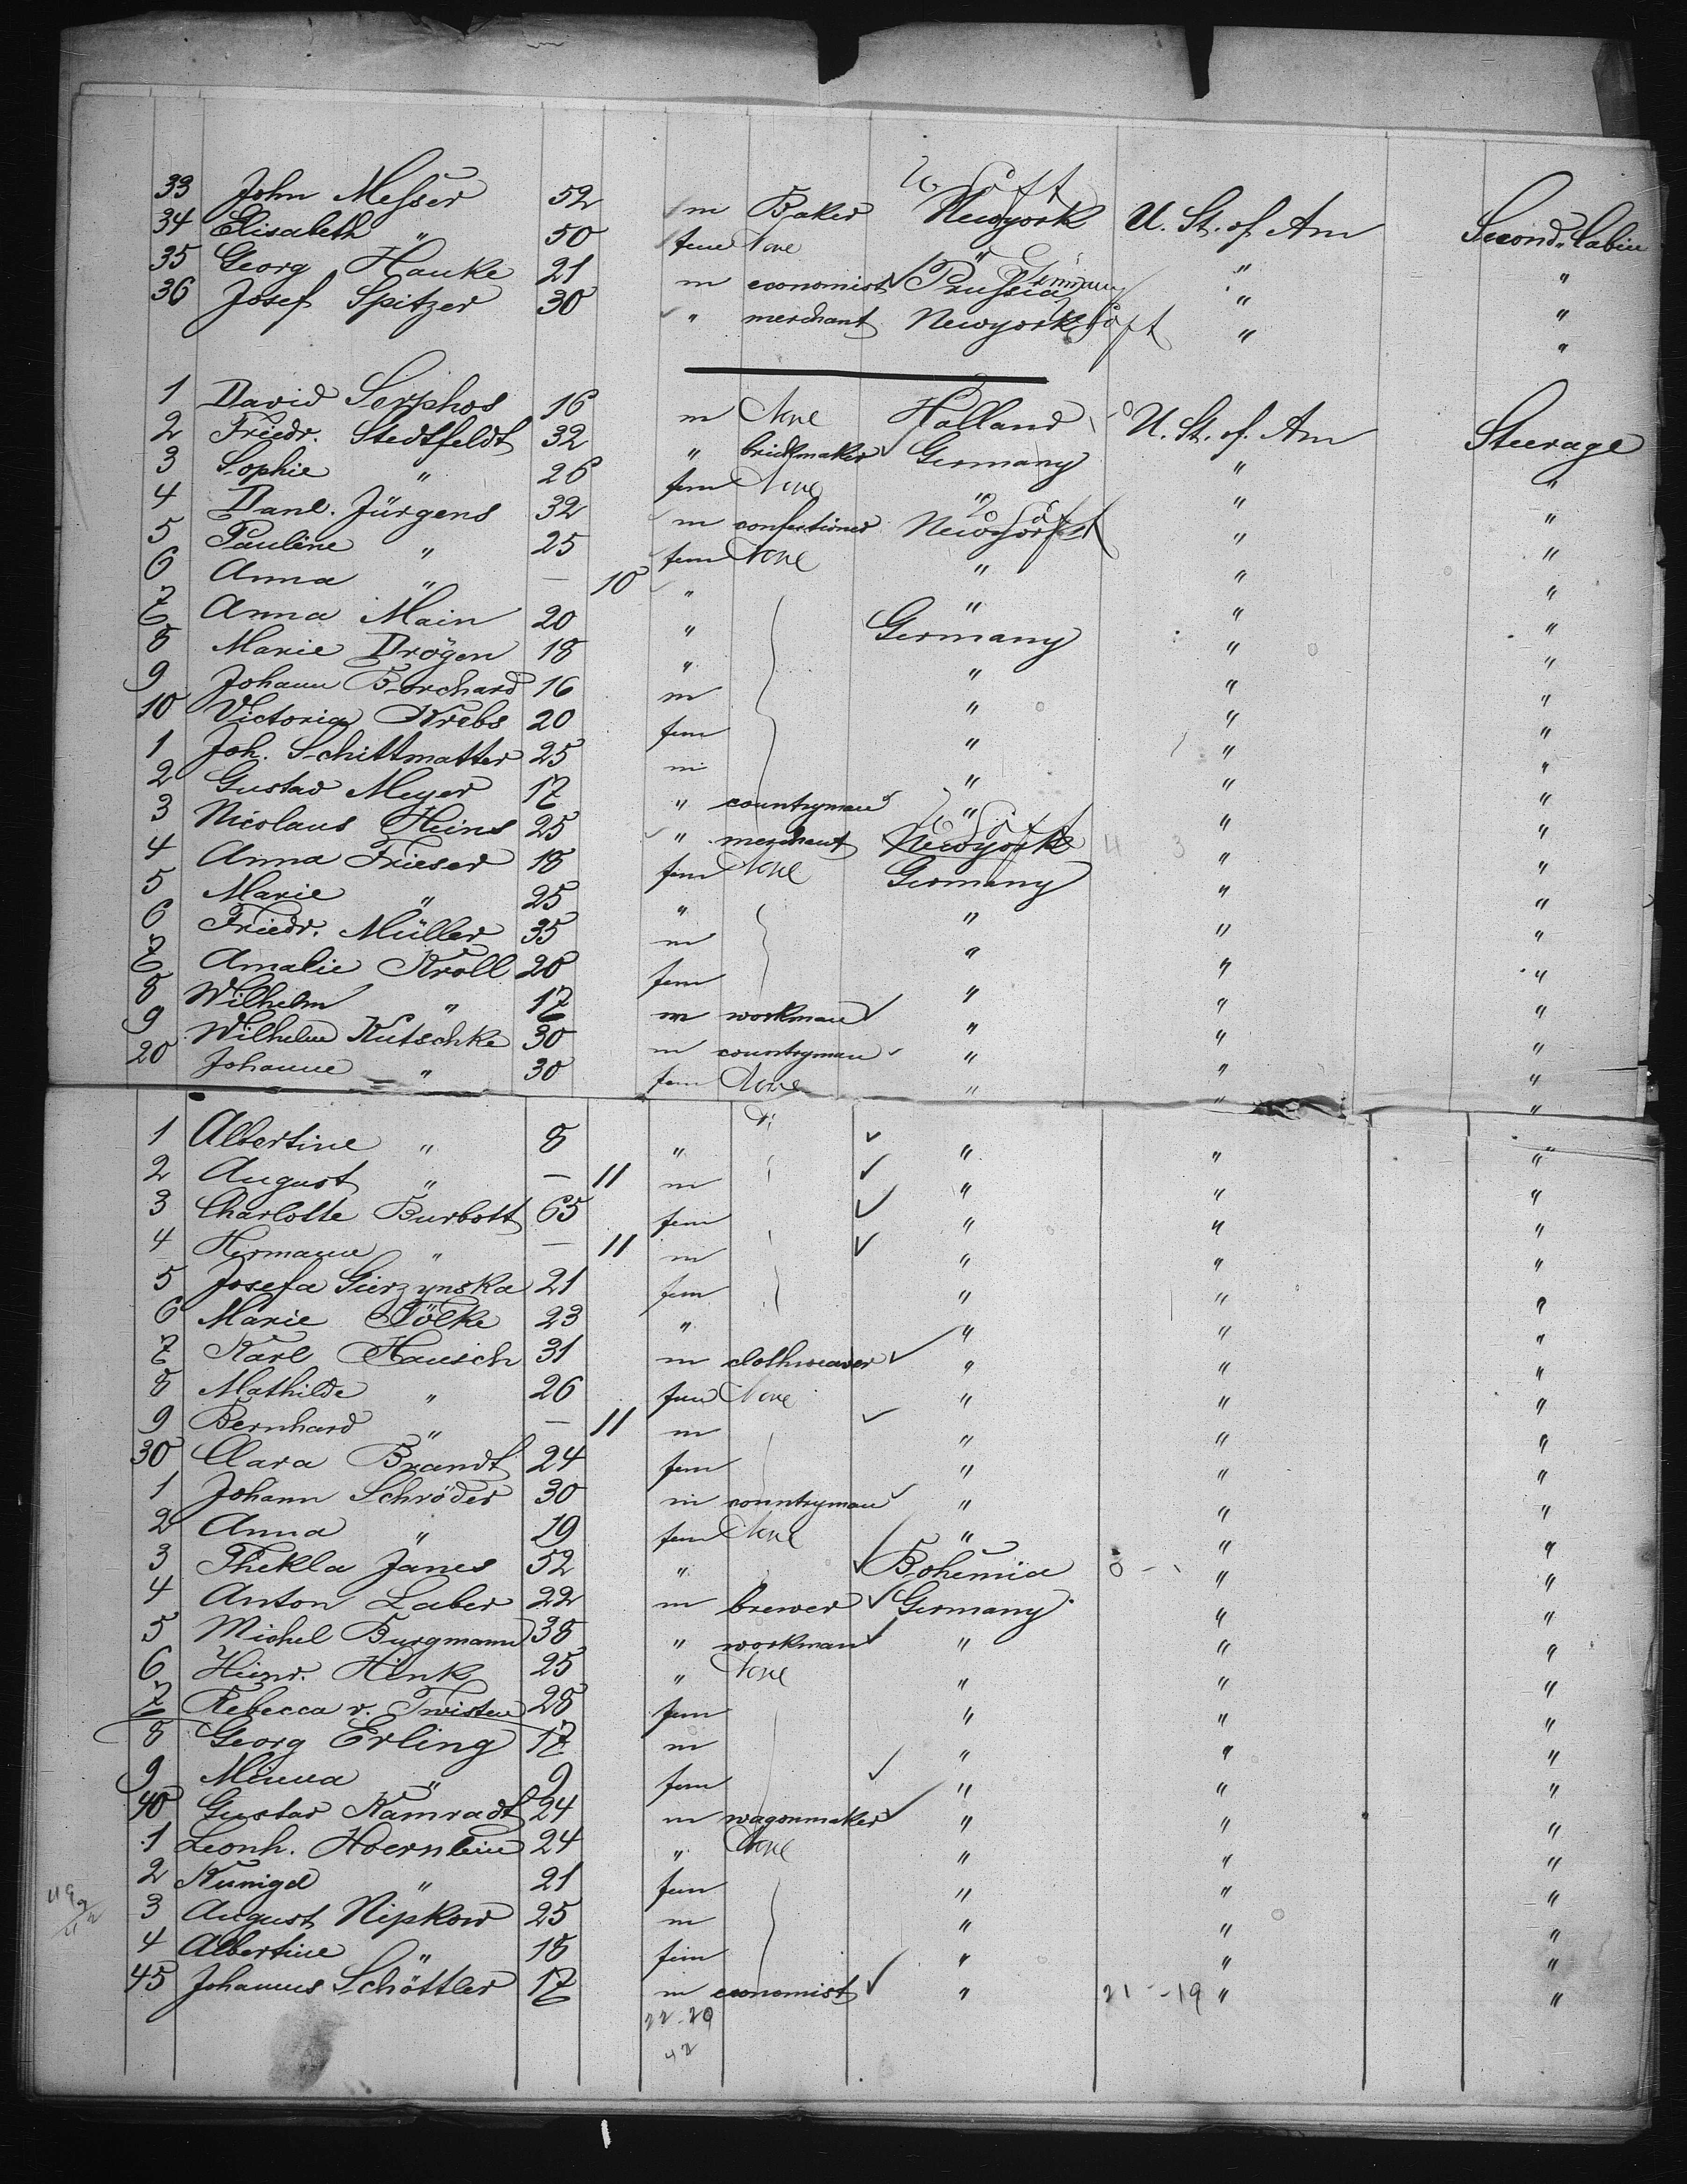 33 John Messer 52 m Baker Newyork U. St. of Am Second Cabin
34 Elisabeth " 50 fem None " " "
35 Georg Hauke 21 m economist Prussia Germany " "
36 Josef Spitzer 30 " merchant Newyork " "
1 David Serphos 16 m None Holland U. St. of. Am Steerage
2 Friedr. Stedtfeldt 32 " brickmaker Germany " "
3 Sophie " 26 fem None " " "
4 Danl. Jürgens 32 m confectioner Newyork " "
5 Pauline " 25 fem None " " "
6 Anna " — 10 " " " "
7 Anna Main 20 " Germany " "
8 Marie Drögen 18 " " " "
9 Johann Borchard 16 m " " "
10 Victoria Krebs 20 fem " " "
1 Joh. Schittmatter 25 m " " "
2 Gustav Meyer 17 " countryman " " "
3 Nicolaus Heins 25 " merchant Newyork " "
4 Anna Frieser 18 fem None Germany " "
5 Marie " 25 " " " "
6 Friedr. Müller 35 m " " "
7 Amalie Kroll 20 fem " " "
8 Wilhelm " 17 m workman " " "
9 Wilhelm Kutschke 30 m countryman " " "
20 Johanne " 30 fem None " " "
1 Albertine " 8 " " " "
2 August " — 11 m " " "
3 Charlotte Burbott 65 fem " " "
4 Hermann " — 11 m " " "
5 Josefa Gierzynska 21 fem " " "
6 Marie Fölke 23 " " " "
7 Karl Hausch 31 m clothweaver " " "
8 Mathilde " 26 fem None " " "
9 Bernhard " — 11 m " " "
30 Clara Brandt 24 fem " " "
1 Johann Schröder 30 m countryman " " "
2 Anna " 19 fem None " " "
3 Thekla Janes 52 " Bohemia " "
4 Anton Laber 22 m brewer Germany " "
5 Michel Burgmann 38 " workman " " "
6 Hienr. Hink 25 " None " " "
7 Rebecca v. Twisten 28 fem " " "
8 Georg Erling 17 m " " "
9 Minna " 9 fem " " "
40 Gustav Kamradt 24 m wagonmaker " " "
1 Leonh. Hoernlein 24 " None " " "
2 Kunigd " 21 fem " " "
3 August Nipkow 25 m " " "
4 Albertine " 18 fem " " "
45 Johannes Schöttler 17 m economist " 21 - 19 " "
22-20
42